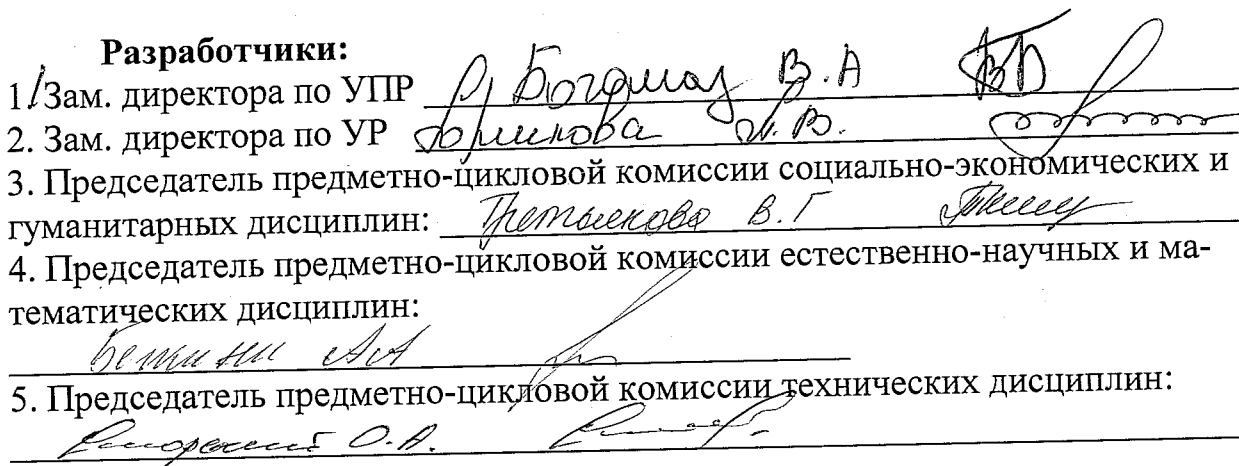 Разработчики:
1. Зам. директора по УПР Богдмаз В.А
2. Зам. директора по УР В.
3. Председатель предметно-цикловой комиссии социально-экономических и
гуманитарных дисциплин: Третьякова В.Г
4. Председатель предметно-цикловой комиссии естественно-научных и ма-
тематических дисциплин:
АА
5. Председатель предметно-цикловой комиссии технических дисциплин:
О.А.